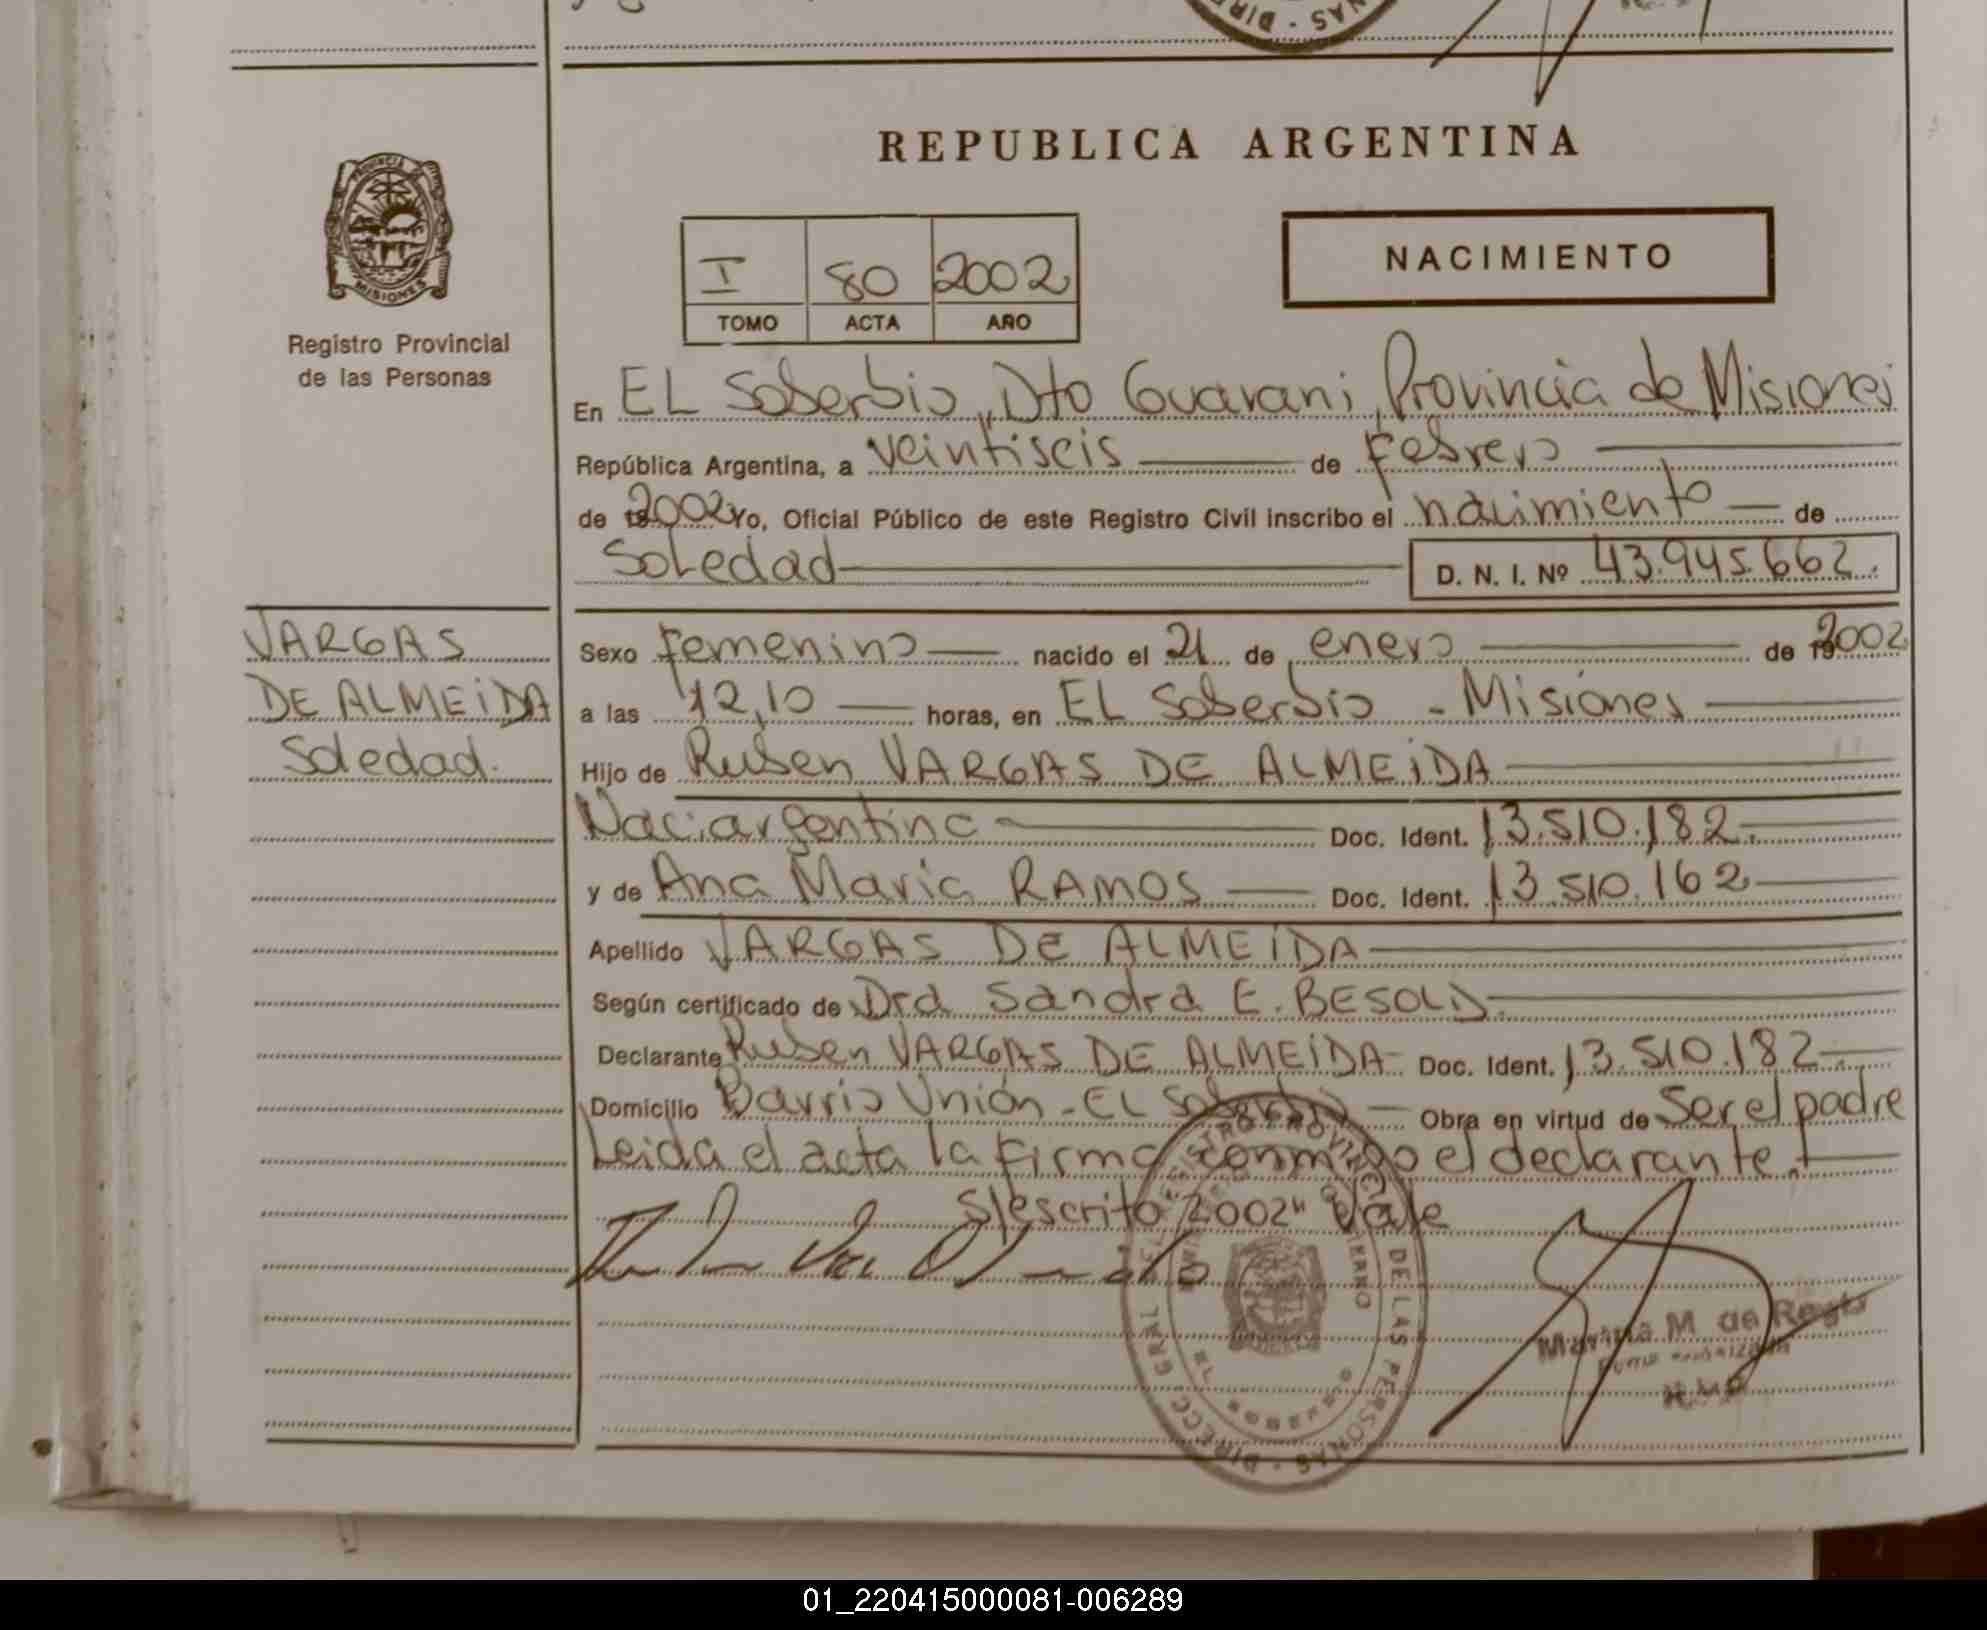 REPUBLICA ARGENTINA
PROVINCIA
MISIONES
Registro Provincial
de las Personas
I 80 2002
TOMO ACTA AÑO
NACIMIENTO
En EL Soberbio, Dto Guarani, Provincia de Misiones
República Argentina, a veintiseis de Febrero
de 2002 Yo, Oficial Público de este Registro Civil inscribo el nacimiento de
Soledad D. N. I. Nº 43.945.662.
VARGAS
DE ALMEiDA
Soledad.
Sexo Femenino nacido el 21 de enero de 2002
a las 12,10 horas, en EL Soberbio - Misiones
Hijo de Ruben VARGAS DE ALMEiDA
Naci.argentina Doc. Ident. 13.510.182.
y de Ana Maria RAMOS Doc. Ident. 13.510.162
Apellido VARGAS DE ALMEiDA
Según certificado de Dra Sandra E. BESOLD.
Declarante Ruben VARGAS DE ALMEiDA Doc. Ident. 13.510.182
Domicilio Barrio Unión - EL Soberbio Obra en virtud de Ser el padre
Leida el acta la firma conmigo el declarante.
S/escrito "2002" Vale
DIRECC GRAL DEL REGISTRO PROVINCIAL DE LAS PERSONAS
EL SOBERBIO
Marina M. de Regis
01_220415000081-006289